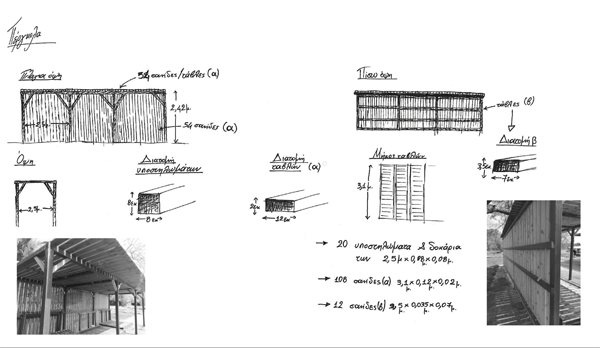 Πέργκολα
Πλάγια όψη
54 σανίδες/τάβλες (α)
2,42μ.
54 σανίδες (α)
Πίσω όψη
τάβλες (β)
Διατομή β
3.5εκ
7εκ
Όψη
Διατομή
υποστηλωμάτων
8εκ
8εκ
Διατομή
ταβλών (α)
2εκ
12εκ
Μήκος ταβλών
3,1 μ.
→ 20 υποστηλώματα & δοκάρια
των 2,5μ x 0,08μ x 0,08μ.
→ 108 σανίδες(α) 3,1μ x 0,12μ x 0,02μ.
→ 12 σανίδες(β) 5μ x 0,035μ x 0,07μ.